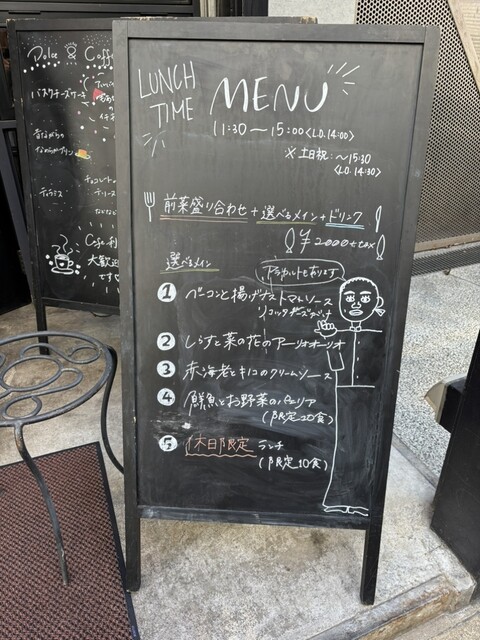 LUNCH TIME
MENU
11:30〜15:00<L.O.14:00>
※土日祝:〜15:30
<L.O.14:30>
前菜盛り合わせ+選べるメイン+ドリンク
¥2000+tax
選べるメイン
アラカルトもあります
1 ベーコンと揚げナストマトソース
リコッタチーズがけ
2 しらすと菜の花のアーリオオーリオ
3 赤海老とキノコのクリームソース
4 鮮魚とお野菜の
(限定20食)
5 休日限定 ランチ
(限定10食)
Coff
バスクチーズケーキ
昔ながらの
なめらかプリン
ティラミス
Cafe利
大歓迎
です